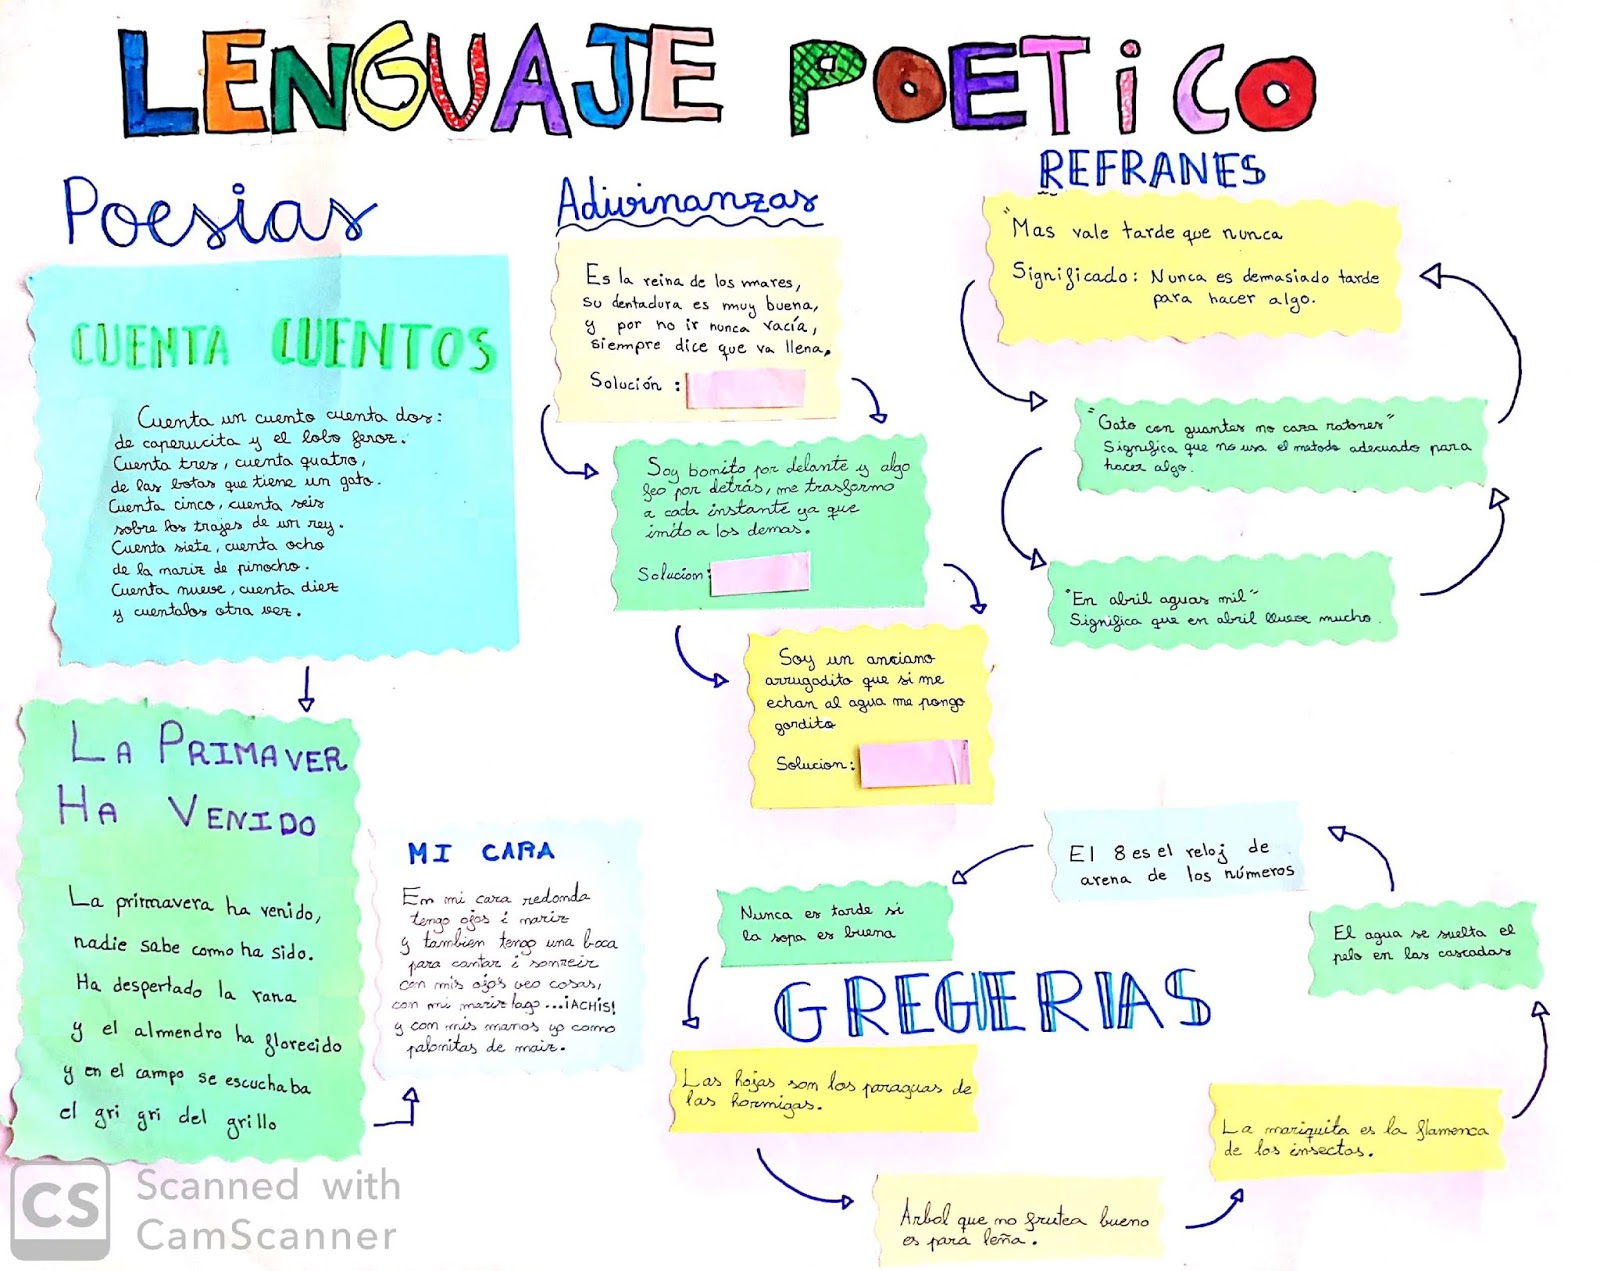 LENGUAJE POETICO
Poesias
CUENTA CUENTOS
Cuenta un cuento cuenta dos:
de caperucita y el lobo feroz.
Cuenta tres, cuenta quatro,
de las botas que tiene un gato.
Cuenta cinco, cuenta seis
sobre los trajes de un rey.
Cuenta siete, cuenta ocho
de la nariz de pinocho.
Cuenta nueve, cuenta diez
y cuentalos otra vez.
LA PRIMAVER
HA VENIDO
La primavera ha venido,
nadie sabe como ha sido.
Ha despertado la rana
y el almendro ha florecido
y en el campo se escuchaba
el gri gri del grillo
MI CARA
En mi cara redonda
tengo ojos i nariz
y tambien tengo una boca
para cantar i sonreir
con mis ojos veo cosas,
con mi nariz hago...¡ACHIS!
y con mis manos yo como
palomitas de maiz.
Adivinanzas
Es la reina de los mares,
su dentadura es muy buena,
y por no ir nunca vacía,
siempre dice que va llena.
Solución :
Soy bonito por delante y algo
feo por detrás, me trasformo
a cada instante ya que
imito a los demas.
Solucion:
Soy un anciano
arrugadito que si me
echan al agua me pongo
gordito
Solucion:
REFRANES
"Mas vale tarde que nunca
Significado: Nunca es demasiado tarde
para hacer algo.
"Gato con guantes no caza ratones"
Significa que no usa el metodo adecuado para
hacer algo.
"En abril aguas mil"
Significa que en abril llueve mucho.
GREGERIAS
El 8 es el reloj de
arena de los números
Nunca es tarde si
la sopa es buena
Las hojas son los paraguas de
las hormigas.
Arbol que no frutea bueno
es para leña.
La mariquita es la flamenca
de los insectos.
El agua se suelta el
pelo en las cascadas
CS
Scanned with
CamScanner